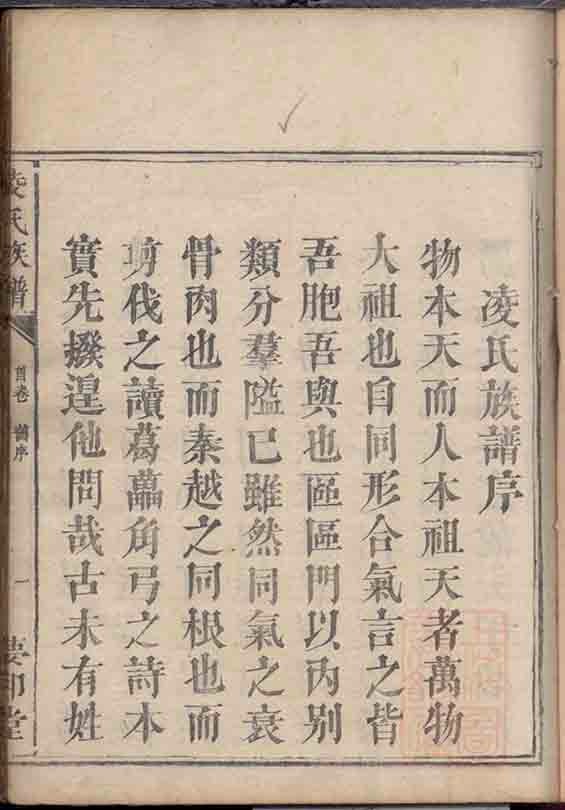 凌氏族譜序
物本天而人本祖天者萬物
大祖也自同形合氣言之皆
吾胞吾與也區區門以內別
類分羣隘已雖然同氣之衰
骨肉也而秦越之同根也而
剪伐之讀葛藟角弓之詩本
實先撥遑他問哉古未有姓
凌氏族譜
首卷 舊序
一